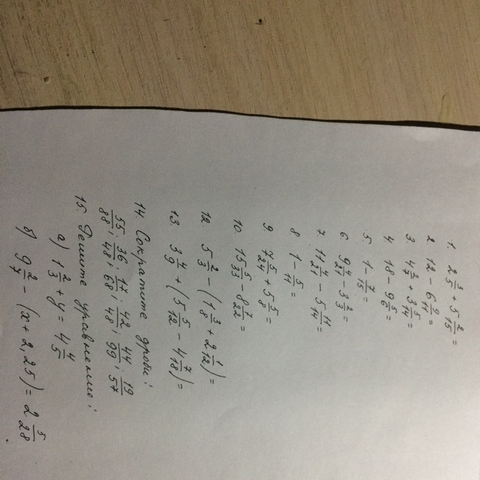 1. 2 3/5 + 5 2/15 =
2 12 - 6 2/11 =
3 4 4/7 + 3 5/14 =
4 18 - 9 5/6 =
5. 1 - 7/15 =
6. 9 4/27 - 3 2/3 =
7 11 4/21 - 5 11/14 =
8 1 - 5/11 =
9 7 5/24 + 5 5/8 =
10 15 5/33 - 8 7/22 =
12 5 2/3 - (1 3/8 + 2 1/12) =
13 3 4/9 + (5 5/12 - 4 7/18) =
14 Сократите дроби:
55/88; 36/48; 17/68; 42/48; 44/99; 19/57
15 Решите уравнения:
а) 1 2/3 + y = 4 4/5
б) 9 2/7 - (x + 2,25) = 2 5/28.